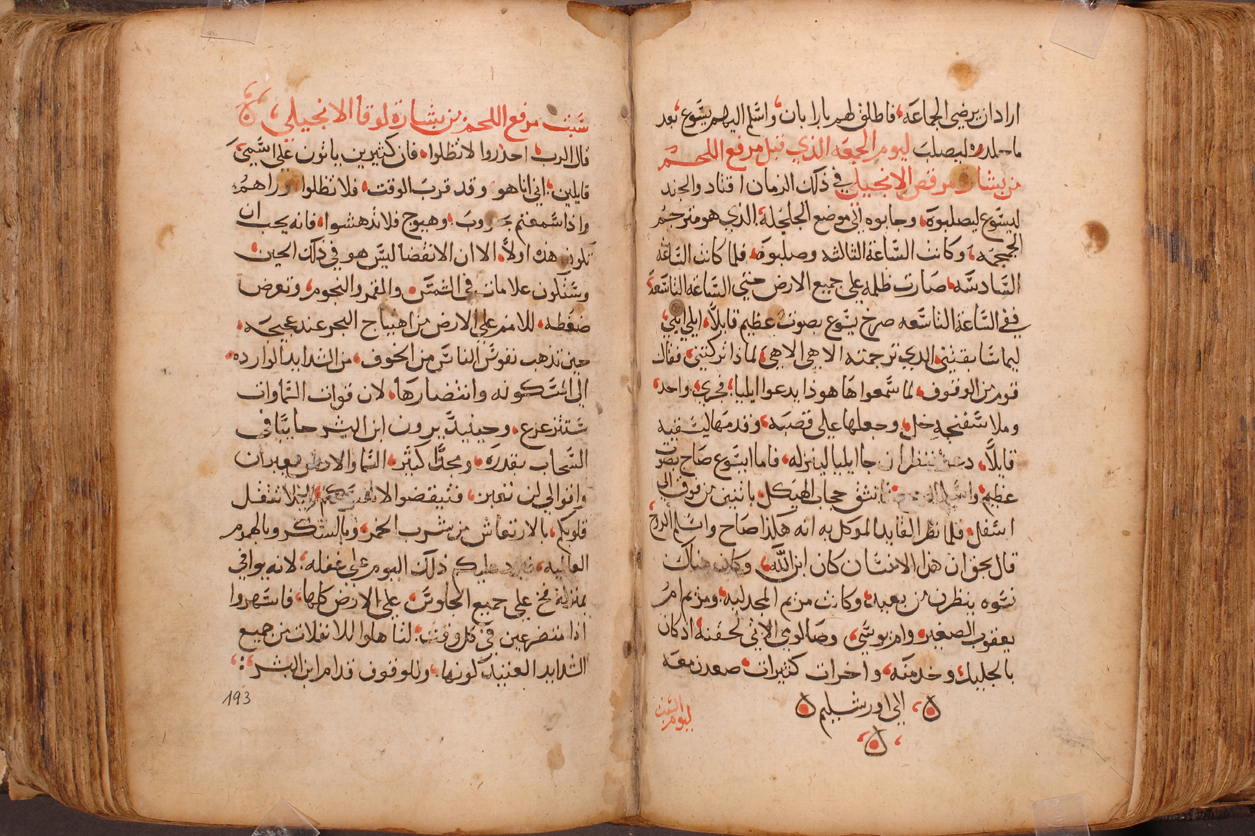 اراد ان يرضي الجماعة، فاطلق لهم بارابان واسلم اليهم يسوع بعد
ما جلده ليصلب ليوم الجمعة الذي قبل مرفع اللحم
من بشارة مرقص الانجيلي في ذلك الزمان اقتاد والجند
ليسوع ليصلبوه، وجابوه الي موضع الجلجلة، الذي هو مترجم
الجمجمه، وكانت الساعة الثالثه وصلبوه فلما كانت الساعة
السادسه صارت ظلمه علي جميع الارض حتي الساعة التاسعة
في الساعة التاسعه صرخ يسوع بصوت عظيم قايلاً، ايلي ايلي
ليما سابقتني الذي ترجمته الاهي الاهي لماذا تركتني، فقال
قوم من الوقوف لما سمعوا ها هوذا يدعوا ايليا فجري واحد
وملا سفنجه خل وجعلها علي قصبه وقدمها ليسقيه
قايلاً، دعو ننظر ان جا ايليا لينزله، فاما ايسوع صاح بصوت
عظيم واسلم الروح فانشق حجاب الهيكل باثنين من فوق الي
اسفل فلما نظر القايد الموكل به انه هكذا صاح واسلم الروح
قال بحق ان هذا الانسان كان ابن الله، وكان هناك
نسوه ينظرن من بعيد وكانت مريم المجدلية ومريم ام
يعقوب الصغير وام يوسي وصالومي الاتي لحقنه اذ كان
بالجليل وخدمنه، واخرات كثيرات صعدن معه
الي اورشليم
ليوم السبت
سبت مرفع اللحم من بشارة لوقا الانجيلي
قال الرب احذروا لا تظلوا فان كثيرين ياتون علي اسمي
قايلين اني انا هو وقد قرب الوقت فلا تظلوا وراهم
واذا سمعتم حروب وهيوج فلا تدهشوا فانه يجب ان
تكون هذه اولاً، الا ان الانقضا ليس هو في ذلك الحين
وستكون علامات في الشمس والقمر والنجوم وتعرض
ضغطه للامم علي الارض من اهيياج البحر عند عجيجه
حين تذهب نفوس الناس من الخوف من الشدايد الوارده
الي المسكونه وانتضارها لان قوات السماوات
ستتزعزع، وحينيذ يرون ابن البشر جاييا في
السحاب بقدرة ومجد كثير السما والارض يعبران
واقوالي لن تعبرن فتيقضوا لانفسكم ليلا تثقل
قلوبكم بالارتعاش من شرب الخمر وبالسكر وبالهموم
العالميه فيرد عليكم ذلك اليوم علي غفله لانه يوافي
بمنزلة فخ علي جميع الجلوس علي الارض كلها، فاسهروا
اذا متضرعين في كل وقت لتتاهلوا للانفلات من جميع
الشدايد العتيد كونها وللوقوف قدام ابن البشر
193